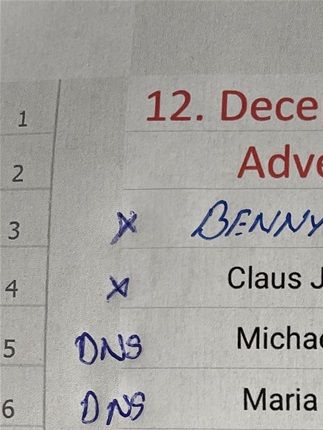 1 12. Dece
2 Adve
3 X BENNY
4 X Claus J
5 DNS Michae
6 DNS Maria